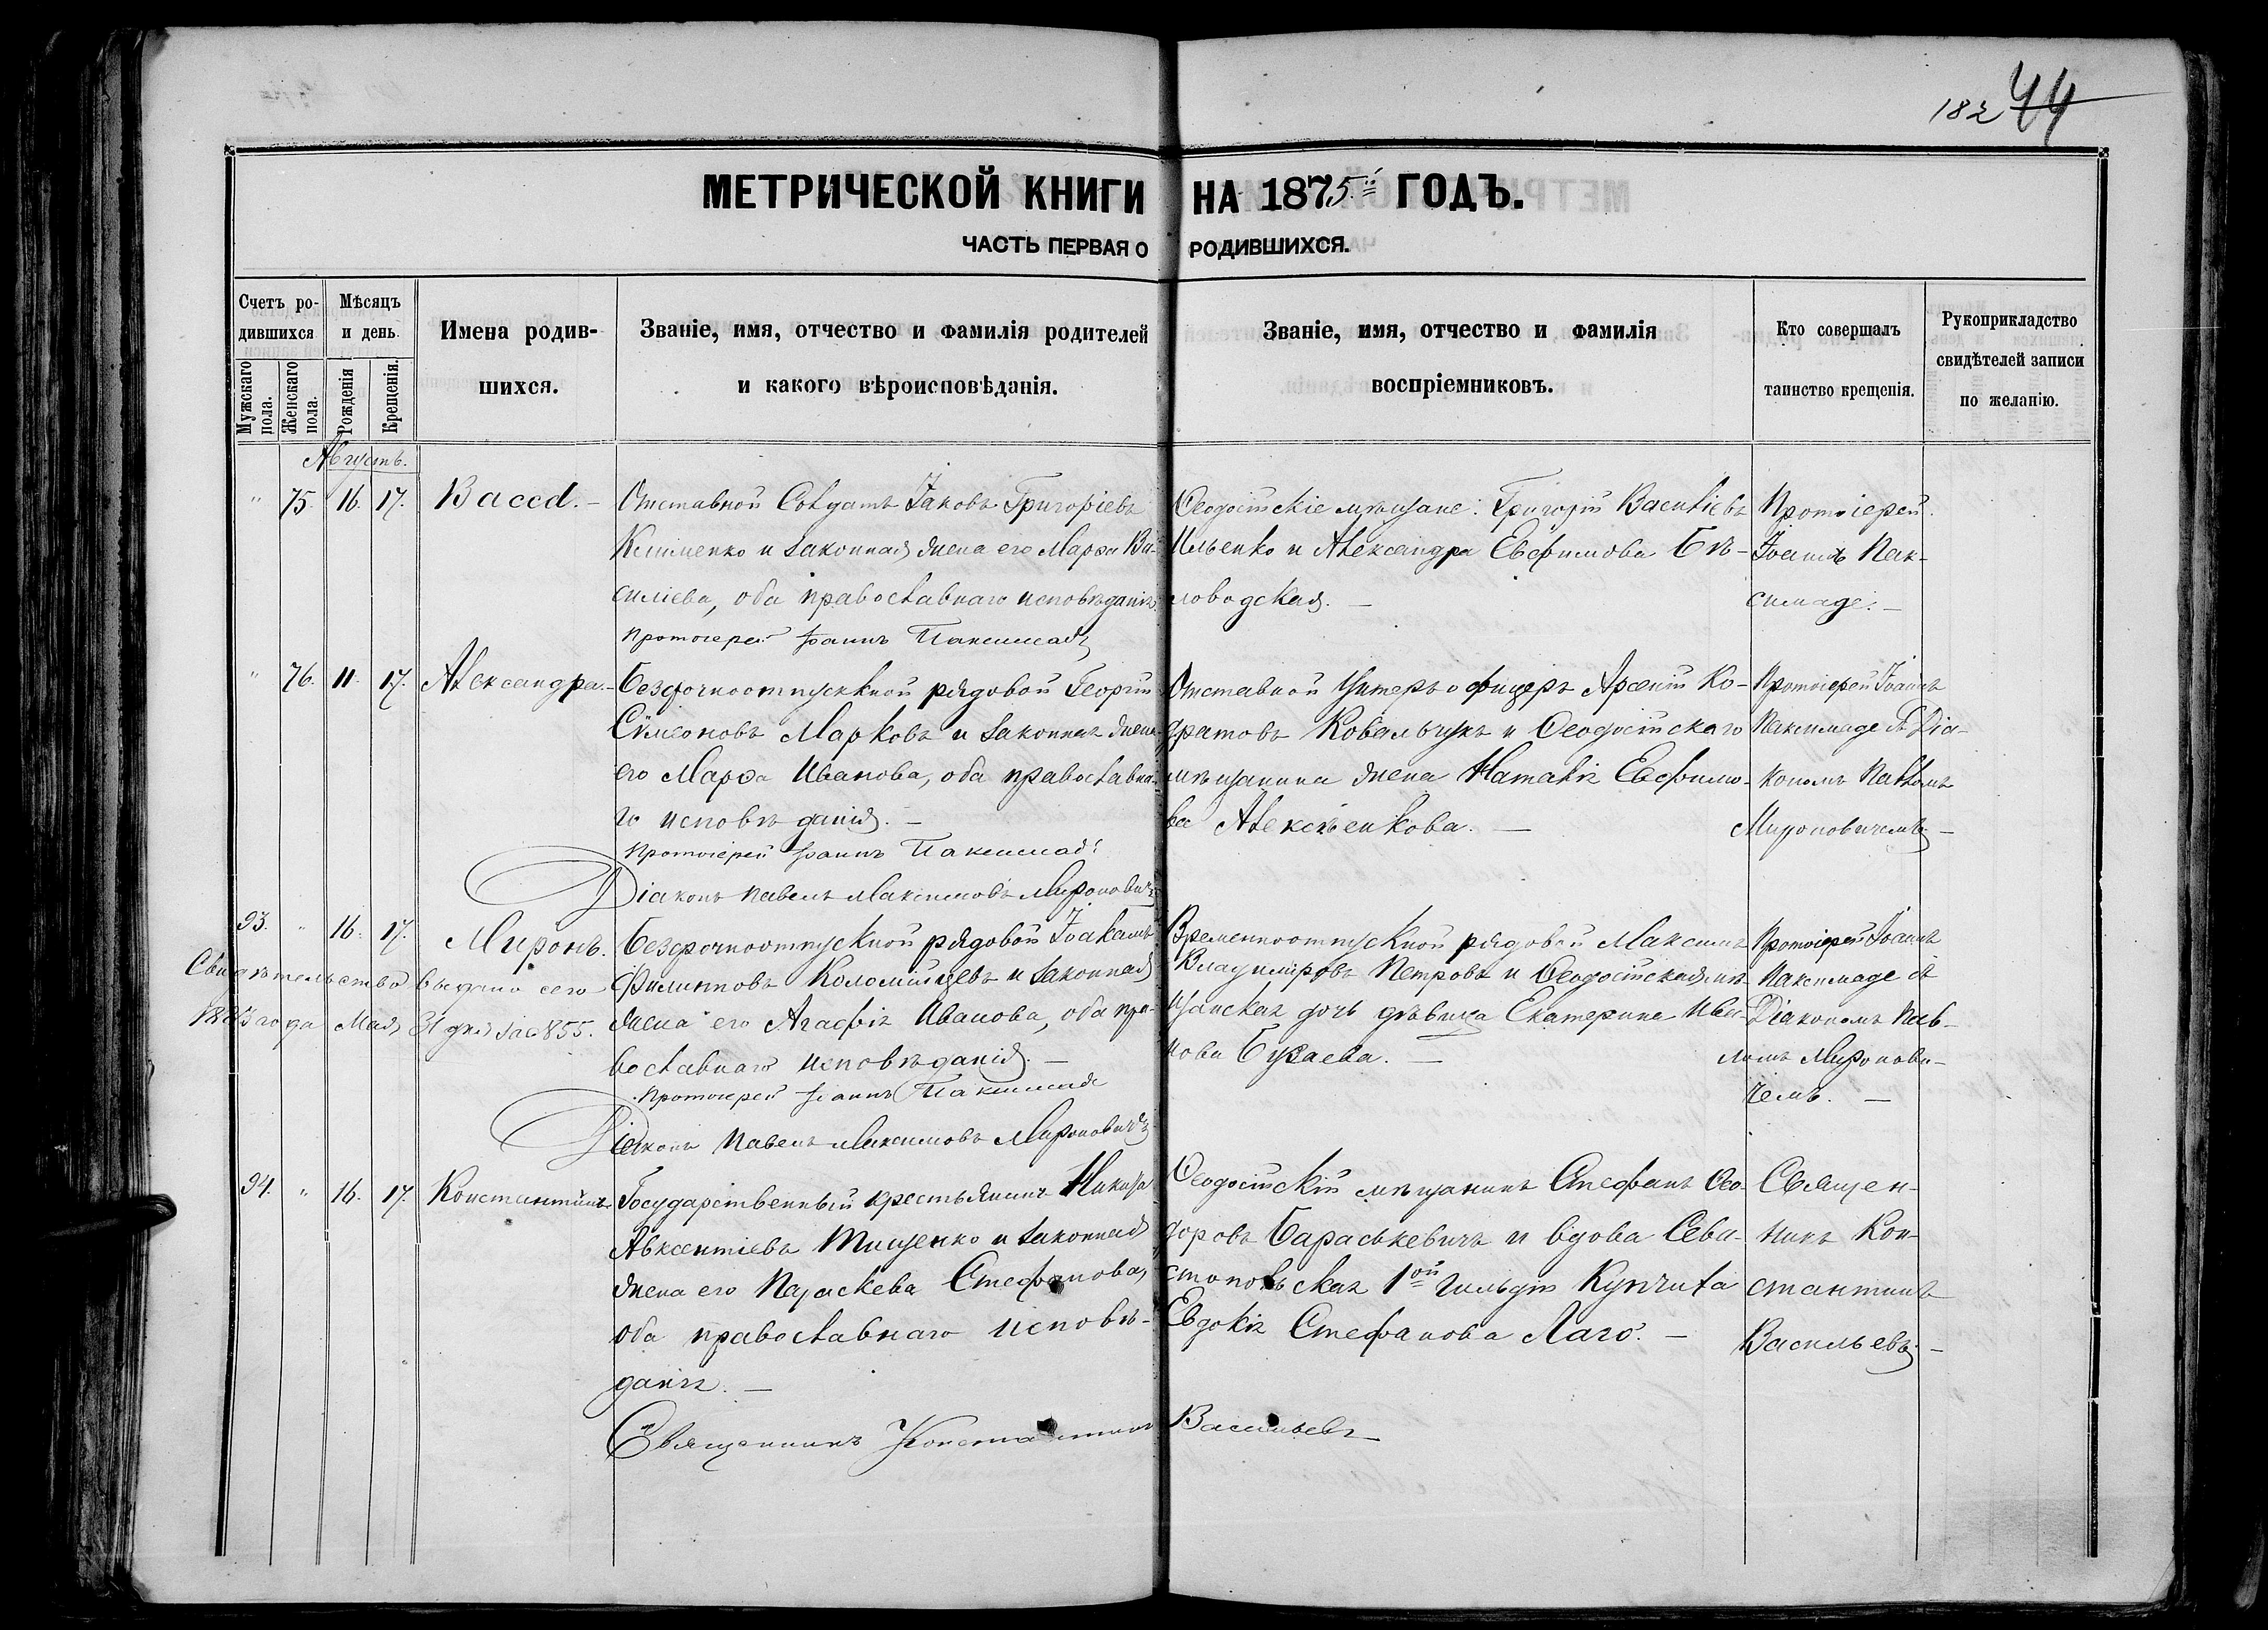 182 44
МЕТРИЧЕСКОЙ КНИГИ НА 1875й ГОДЪ.
ЧАСТЬ ПЕРВАЯ О РОДИВШИХСЯ.
Счетъ ро-
дившихся
Мужскаго пола.
Женскаго пола.
Мѣсяцъ
и день.
Рожденія
Крещенія.
Имена родив-
шихся.
Званіе, имя, отчество и фамилія родителей
и какого вѣроисповѣданія.
Званіе, имя, отчество и фамилія
воспріемниковъ.
Кто совершалъ
таинство крещенія.
Рукоприкладство
свидѣтелей записи
по желанію.
Августъ.
" 75. 16. 17. Васса.-
Отставной Солдатъ Іаковъ Григоріевъ
Клименко и законная жена его Марѳа Ва-
силіева, оба православнаго исповѣданія
Протоіерей Іоаннъ Паксимаде
Ѳеодосійскіе мѣщане: Григорій Василіевъ
Ильенко и Александра Евфимова Бѣ-
ловодская. —
Протоіерей
Іоаннъ Пак-
симаде. —
" 76. 11. 17. Александра.-
Безсрочноотпускной рядовой Георгій
Сѵмеоновъ Марковъ и законная жена
его Марѳа Иванова, оба православна-
го исповѣданія. —
Протоіерей Іоаннъ Паксимаде
Діаконъ Павелъ Максимовъ Мироновичъ
Отставной Унтеръ офицеръ Арсеній Ко-
дратовъ Ковальчукъ и Ѳеодосійскаго
мѣщанина жена Наталія Евфимо-
ва Алексѣенкова. —
Протоіерей Іоаннъ
Паксимаде съ Діа-
кономъ Павломъ
Мироновичемъ. —
93. " 16. 17. Миронъ.
Свидѣтельство выдано сего
1883 года Мая 31 дня за №855.
Безсрочноотпускной рядовой Іоакимъ
Филипповъ Коломійцевъ и законная
жена его Агафія Иванова, оба пра-
вославнаго исповѣданія. —
Протоіерей Іоаннъ Паксимаде
Діаконъ Павелъ Максимовъ Мироновичъ
Временноотпускной рядовой Максимъ
Владиміровъ Петровъ и Ѳеодосійская мѣ-
щанская дочь дѣвица Екатерина Ива-
нова Бузаева. —
Протоіерей Іоаннъ
Паксимаде съ
Діакономъ Пав-
ломъ Миронови-
чемъ. —
94. " 16. 17. Константинъ.
Государственный крестьянинъ Никита
Авксентіевъ Тищенко и законная
жена его Параскева Стефанова,
оба православнаго исповѣ-
данія. —
Ѳеодосійскій мѣщанинъ Стефанъ Ѳео-
доровъ Бараськевичъ и вдова Сева-
стопольская 1ой гильдіи Купчиха
Евдокія Стефанова Лаго. —
Священ-
никъ Кон-
стантинъ
Васильевъ. —
Священникъ Константинъ Васильевъ